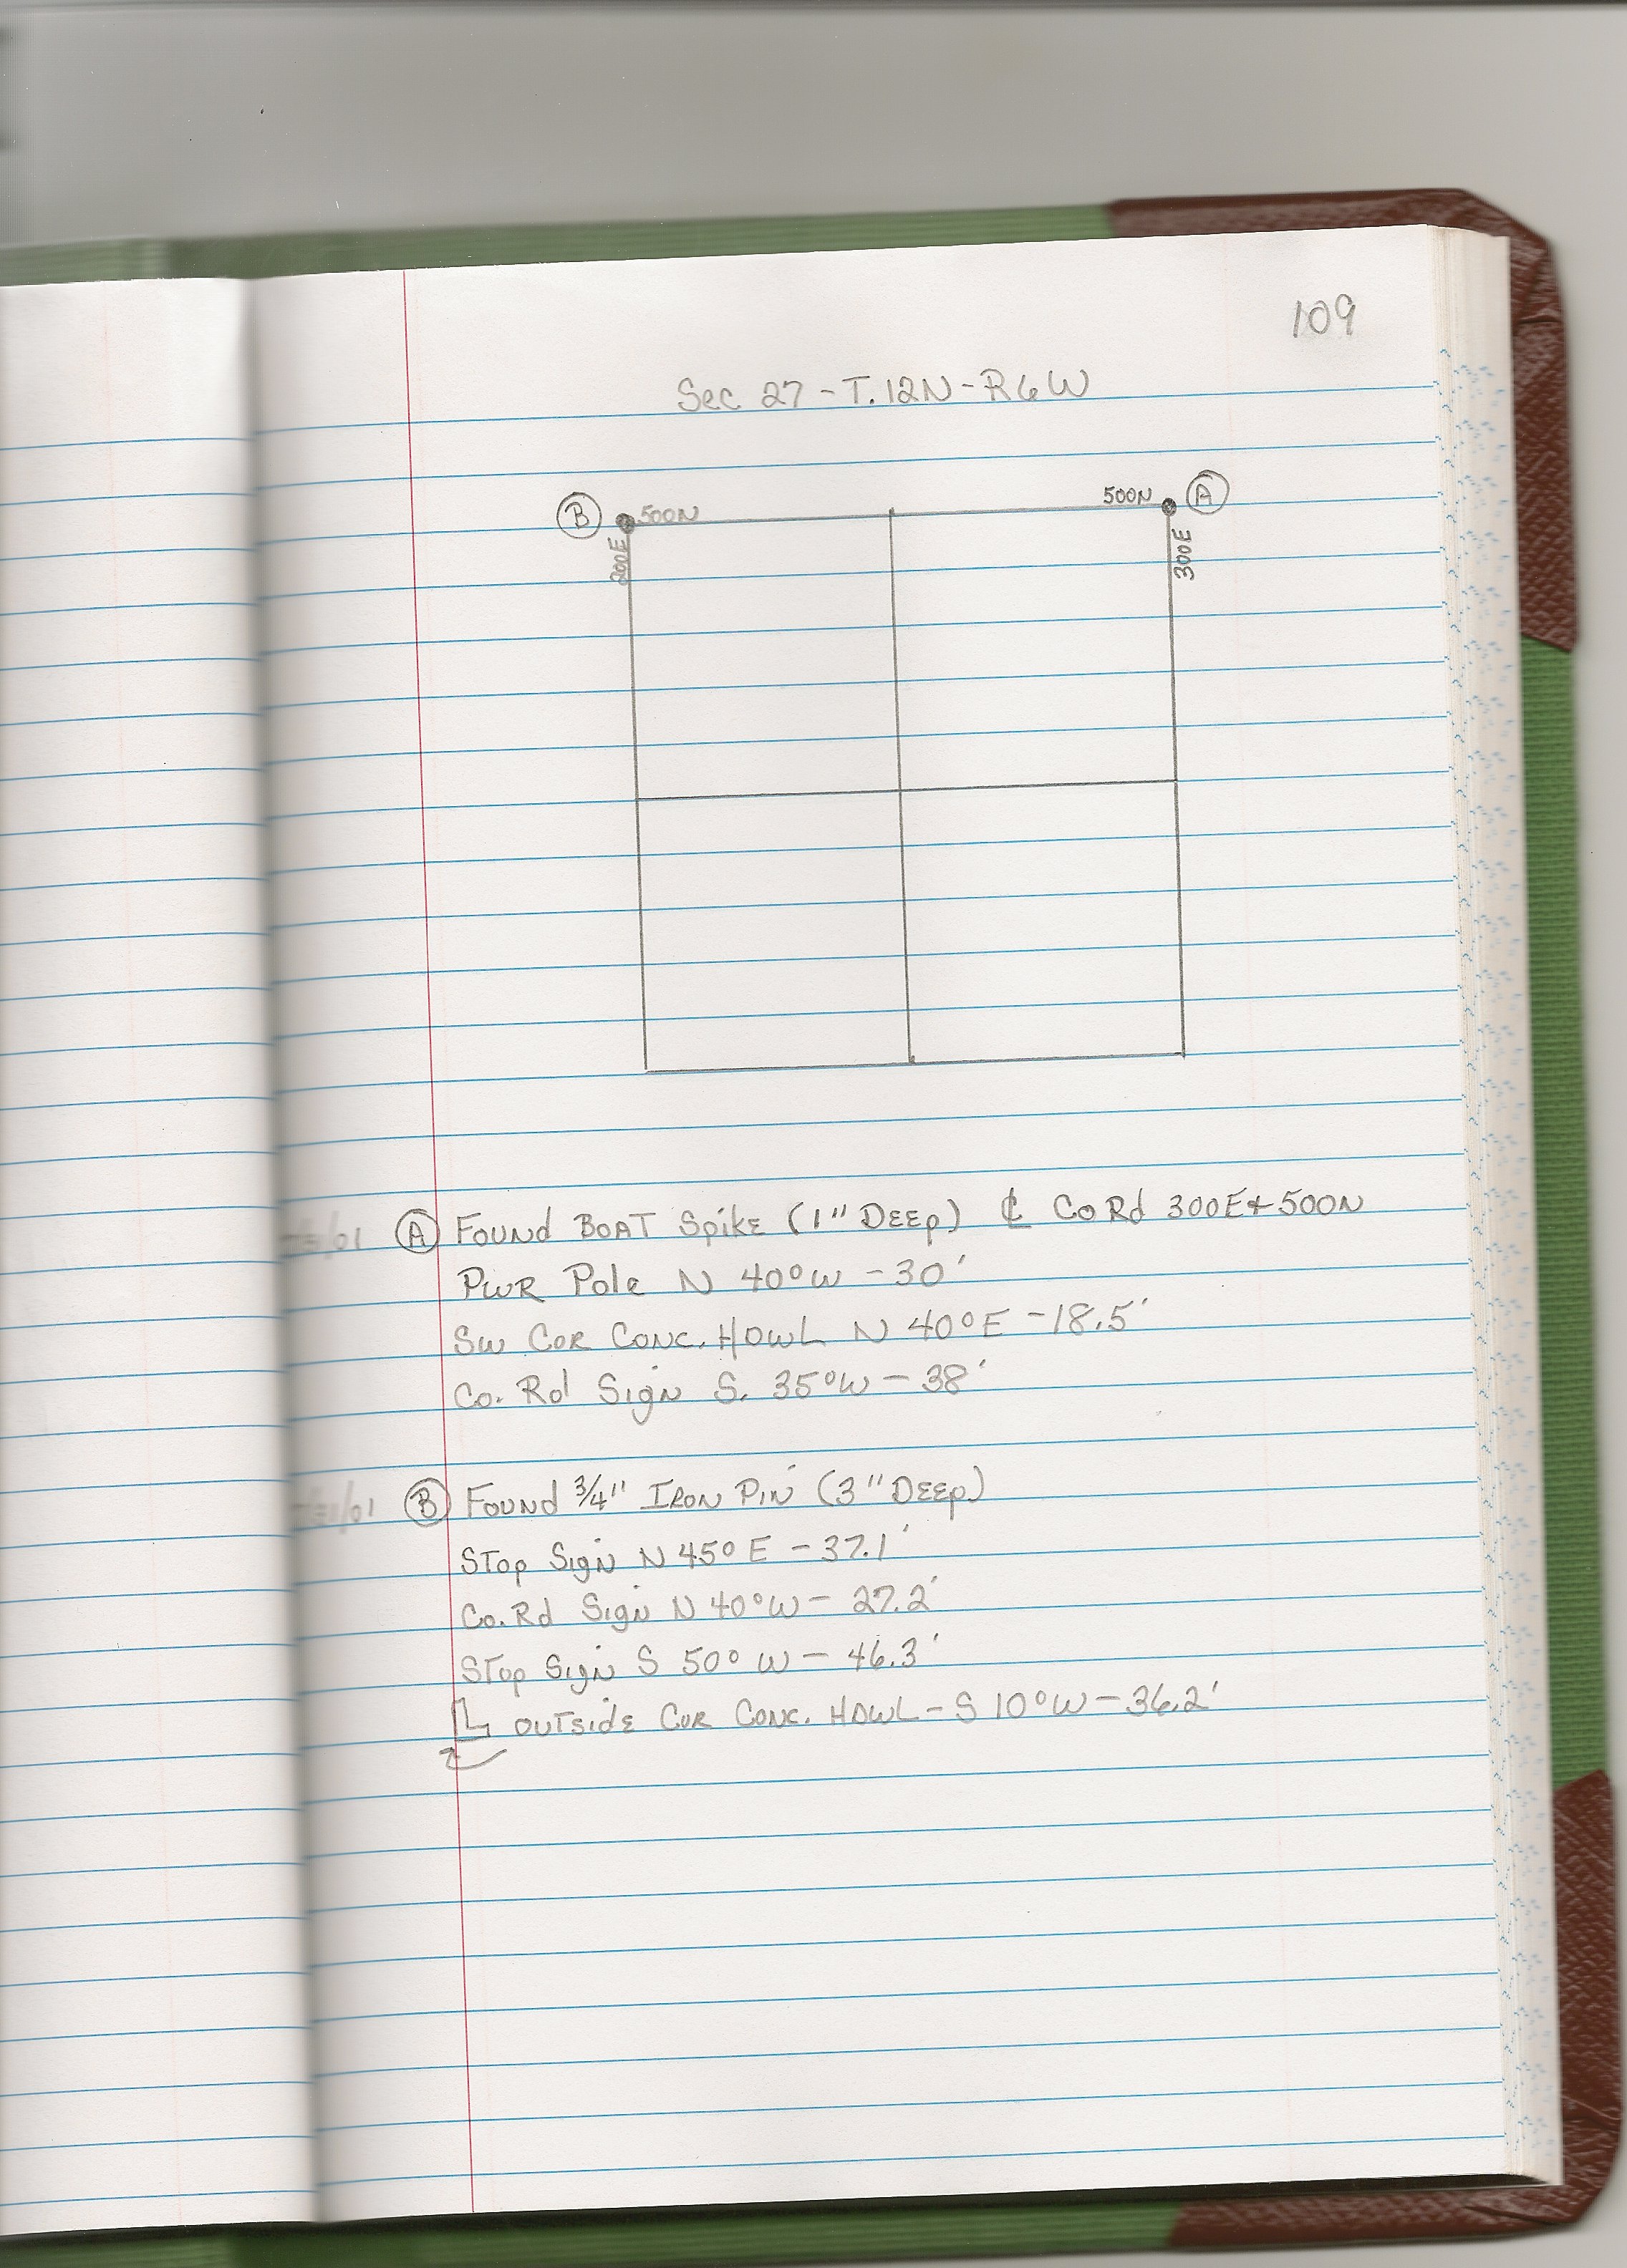 109
Sec 27 - T.12N - R6W
B 500N 500N A
200E 300E
A Found Boat Spike (1" Deep) ℄ Co Rd 300E + 500N
PWR Pole N 40° W - 30'
SW Cor Conc. HDWL N 40° E - 18.5'
Co. Rd Sign S. 35° W - 38'
/01 B Found 3/4" Iron Pin (3" Deep)
Stop Sign N 45° E - 37.1'
Co. Rd Sign N 40° W - 27.2'
Stop Sign S 50° W - 46.3'
Outside Cor Conc. HDWL - S 10° W - 36.2'